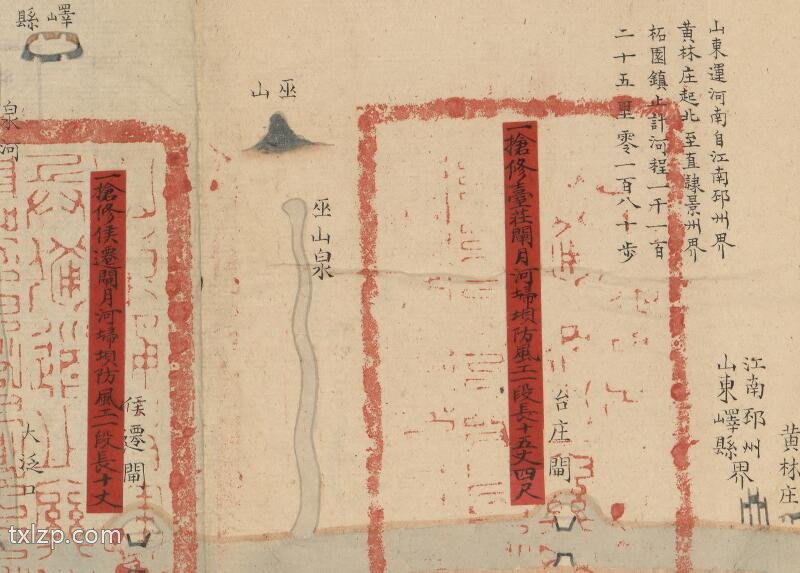 山東運河南自江南邳州界
黃林庄起北至直隷景州界
柘園鎮止計河程一千一百
二十五里零一百八十步
江南邳州界
山東嶧縣
黃林庄
台庄閘
一搶修臺莊閘月河埽垻防風工一段長十五丈四尺
巫山
巫山泉
嶧縣
侯遷閘
一搶修侯遷閘月河埽垻防風工一段長十丈
大泛口
泉河
txlzp.com